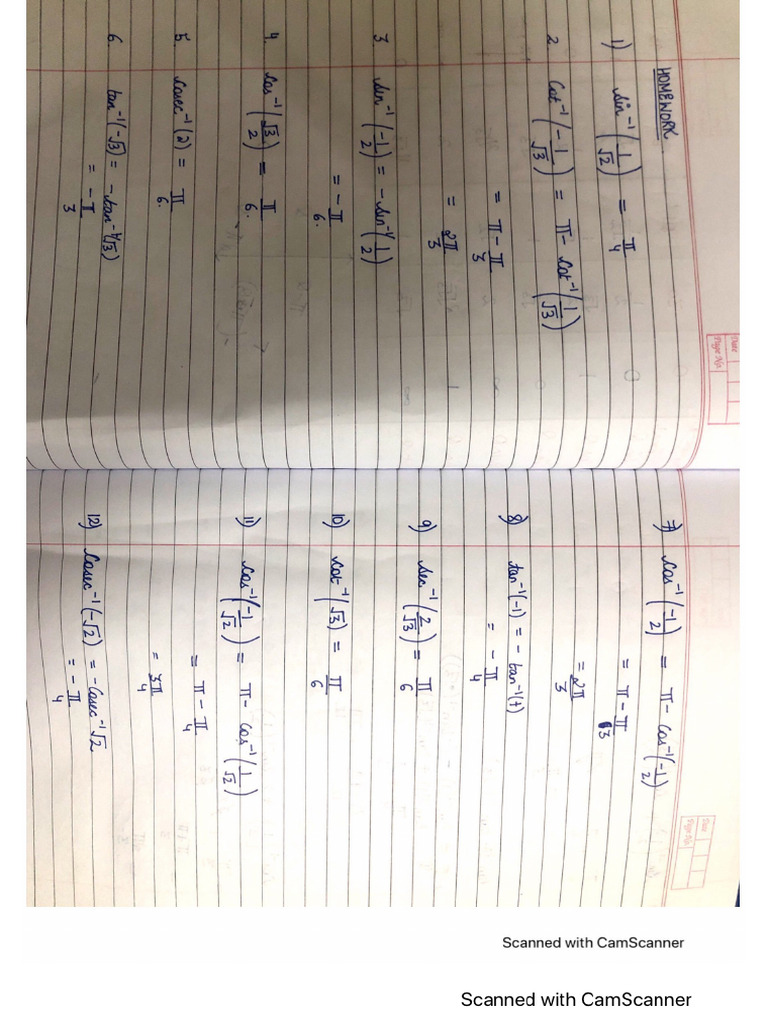 Date
Page No.
HOMEWORK
1) sin⁻¹(1/√2) = π/4
2. Cot⁻¹(-1/√3) = π - cot⁻¹(1/√3)
= π - π/3
= 2π/3
3. sin⁻¹(-1/2) = - sin⁻¹(1/2)
= - π/6.
4. cos⁻¹(√3/2) = π/6.
5. cosec⁻¹(2) = π/6.
6. tan⁻¹(-√3) = - tan⁻¹(√3)
= - π/3
Date
Page No.
7) cos⁻¹(-1/2) = π - cos⁻¹(-1/2)
= π - π/3
= 2π/3
8) tan⁻¹(-1) = - tan⁻¹(1)
= - π/4
9) sec⁻¹(2/√3) = π/6
10) cot⁻¹(√3) = π/6
11) cos⁻¹(-1/√2) = π - cos⁻¹(1/√2)
= π - π/4
= 3π/4
12) Cosec⁻¹(-√2) = - Cosec⁻¹√2
= - π/4
Scanned with CamScanner
Scanned with CamScanner